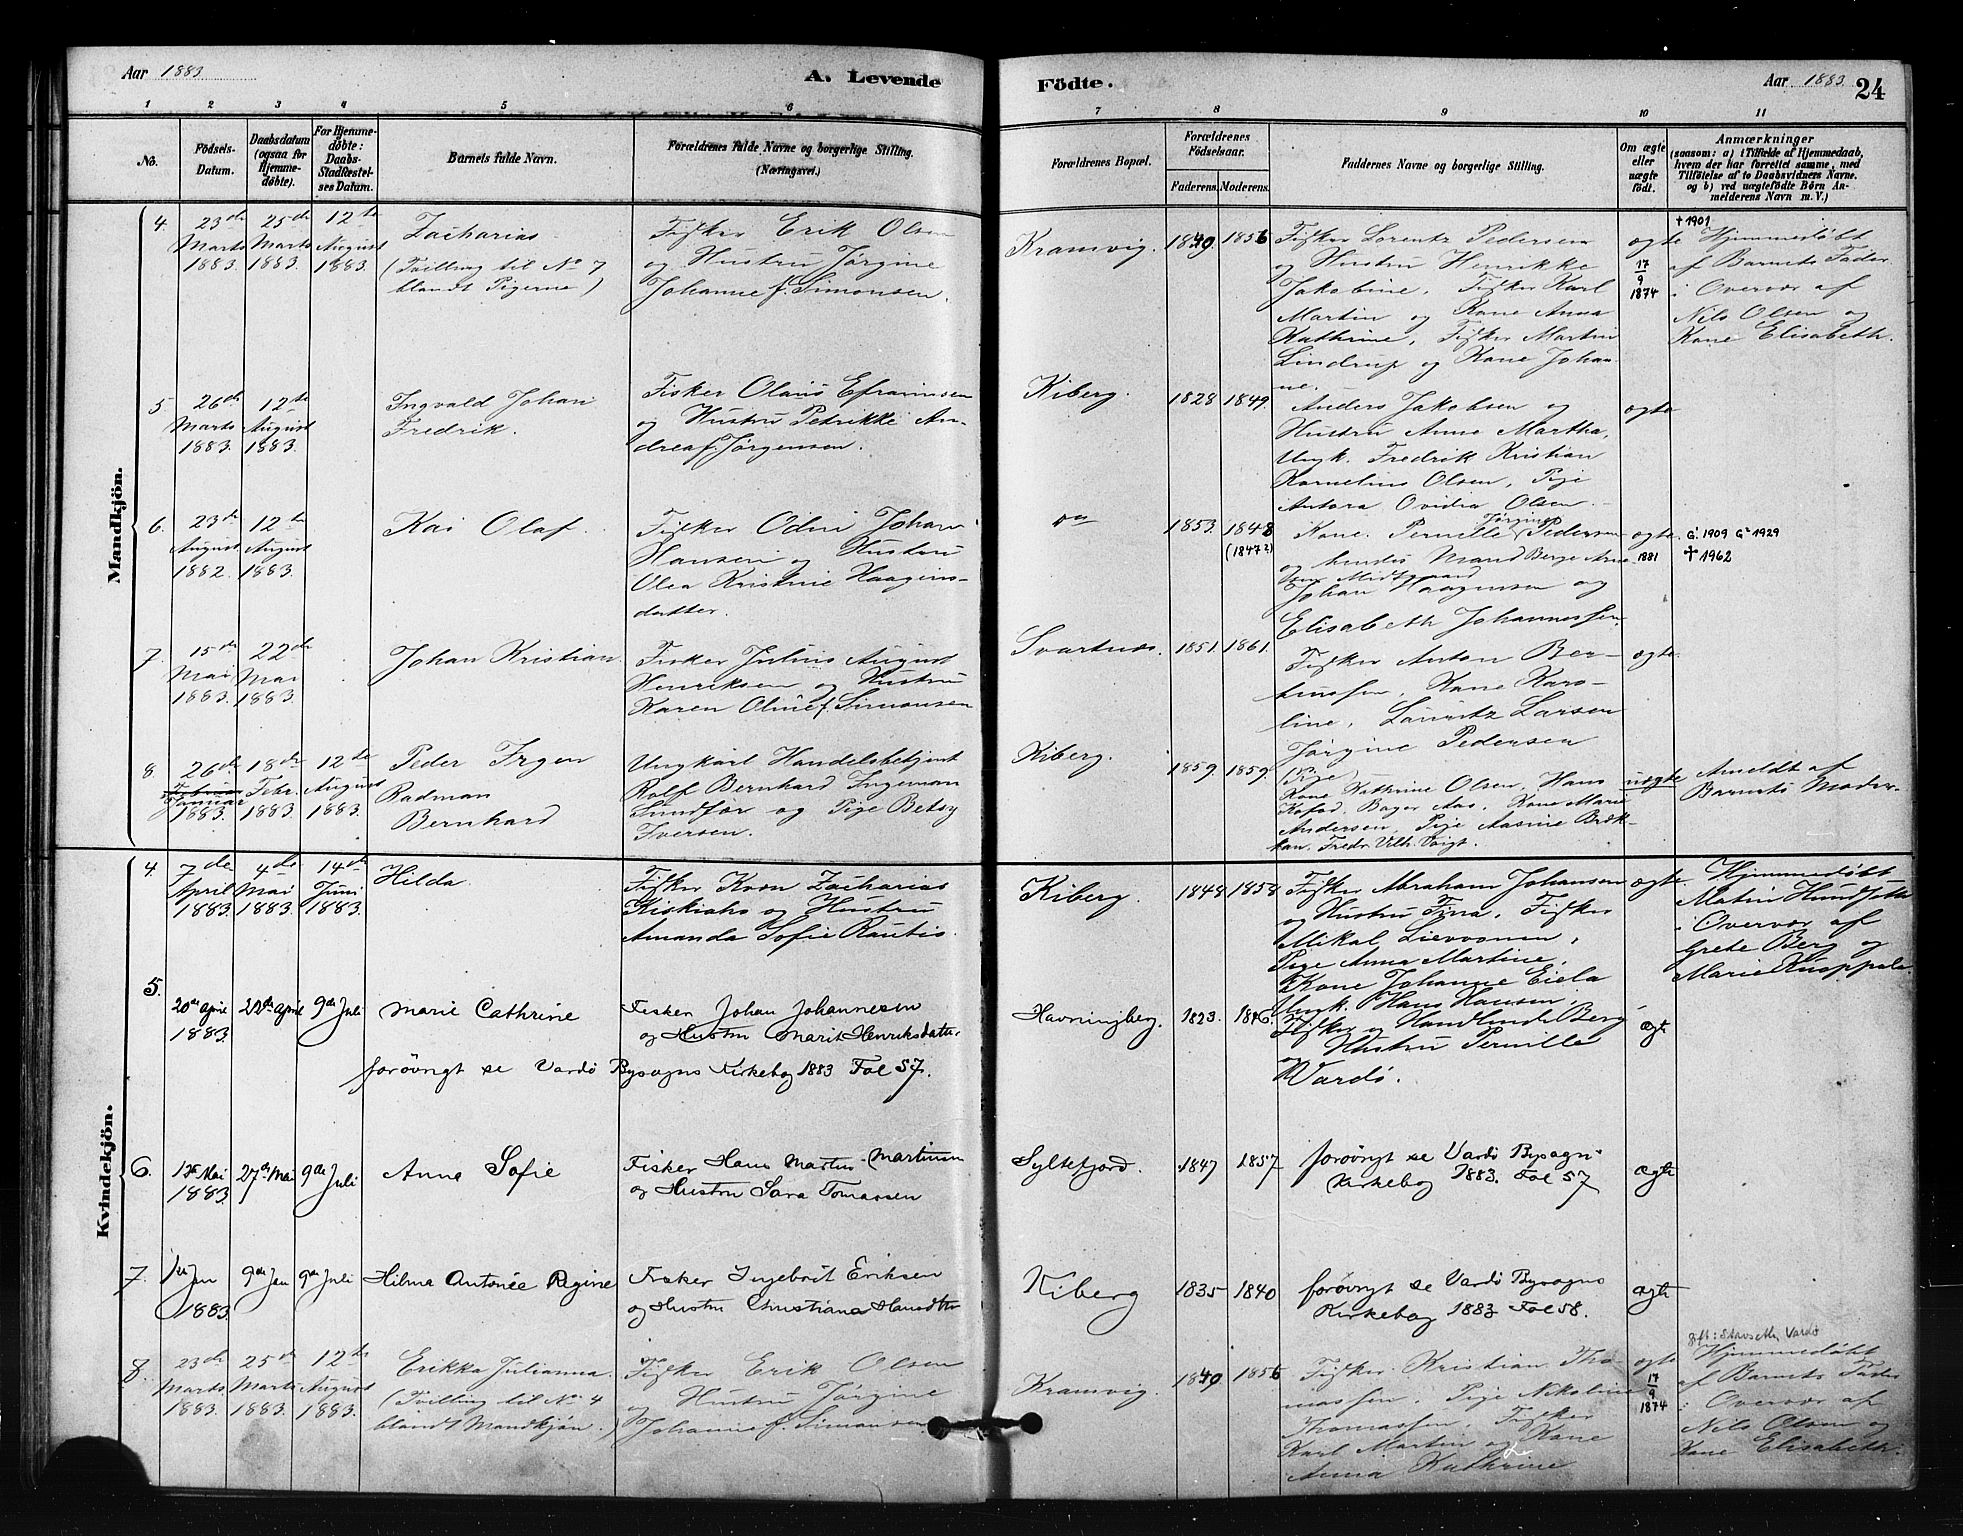 Aar 1883
A. Levende
Födte.
Aar 1883
24
1 2 3 4 5 6 7 8 9 10 11
No.
Födsels-
Datum.
Daabsdatum
(ogsaa for
Hjemme-
döbte).
For Hjemme-
döbte:
Daabs-
Stadfæstel-
ses Datum.
Barnets fulde Navn.
Forældrenes fulde Navne og borgerlige Stilling.
(Næringsvei.)
Forældrenes Bopæl.
Forældrenes
Födselsaar.
Faderens. Moderens.
Faddernes Navne og borgerlige Stilling.
Om ægte
eller
uægte
födt.
Anmærkninger
(saasom: a) i Tilfælde af Hjemmedaab,
hvem der har forrettet samme, med
Tilföielse af to Daabsvidners Navne.
og b) ved uægtefödte Börn An-
melderens Navn m. V.)
Mandkjön.
4.
23de
Marts
1883.
25de
Marts
1883.
12te
August
1883.
Zacharias
(Tvilling til No 7
blandt Pigerne)
Fisker Erik Olsen
og Hustru Jørgine
Johanne f. Simonsen.
Kramvig.
1849.
1856
Fisker Lorentz Pedersen
og Hustru Henrikke
Jakobine, Fisker Karl
Martin og Kone Anna
Kathrine, Fisker Martin
Lindrup og Kone Johan-
ne.
ægte
17
9
1874
† 1901
Hjemmedøbt
af Barnets Fader
i Overvær af
Nils Olsen og
Kone Elisabeth.
5.
26de
Marts
1883.
12te
August
1883.
Ingvald Johan
Fredrik.
Fisker Olaus Efraimsen
og Hustru Petrikke An-
drea f. Jørgensen.
Kiberg.
1828
1849.
Anders Jakobsen og
Hustru Anne Martha,
Ungk. Fredrik Kristian
Kornelius Olsen, Pige
Antora Ovidia Olsen.
ægte
6.
23de
August
1882.
12te
August
1883.
Kai Olaf.
Fisker Odin Johan
Hansen og Hustru
Olea Kristine Haagens-
datter.
1853.
1848
(1847?)
Kone Pernille Jørgine Pedersen
og hendes Mand Berge Arne
Johan Haagensen og
Elisabeth Johannessen.
ægte
1881
G. 1909 G. 1929
† 1962
7.
15de
Mai
1883.
22de
Mai
1883.
Johan Kristian.
Fisker Julius August
Henriksen og Hustru
Karen Oline f. Simonsen
Svartnæs.
1851.
1861.
Fisker Anton Ber-
thussen, Kone Karo-
line, Lauritz Larsen
Jørgine Pedersen
ægte
8.
26de
Januar
1883.
18de
Febr.
1883.
12te
August
1883.
Peder Irgen
Radman
Bernhard
Ungkarl Handelsbetjent
Rolf Bernhard Ingeman
Sundför og Pige Betsy
Iversen.
Kiberg.
1859.
1859.
(Pige)
Kone Kathrine Olsen, Hans
Kofod, Bager Aas, Kone Marie
Andersen, Pige Aasine Brek-
kan, Fredr. Vilh. Voigt.
uægte
Anmeldt af
Barnets Moder.
Kvindekjön.
4.
7de
April
1883.
4de
Mai
1883.
14de
Juni
1883.
Hilda.
Fisker Kvon Zacharias
Kiskiaho og Hustru
Amanda Sofie Rautio.
Kiberg.
1848
1858
Fisker Abraham Johansen
og Hustru Fina, Fisker
Mikal Lievonen,
Pige Anna Martine,
Kone Johanne Eiela
ægte.
Hjemmedøbt
i Overvær af
Grete Berg og
5.
20de April
1883.
22de April
9de Juli
Marie Cathrine
Fisker Johan Johannesen
og Hustru Marit Henriksdatter
forøvrigt se Vardö Bysogns Kirkebog 1883 Fol 57.
Havningberg.
1823.
1846.
Ungk. Hans Hansen,
Fisker og Handlende Berg
og Hustru Pernille
Vardö.
ægte
6.
12te Mai
1883.
27de Mai
9de Juli
Anne Sofie
Fisker Hans Martin Martinsen
og Hustru Sara Tomassen
Syltefjord.
1847
1857
forøvrigt se Vardö Bysogns
Kirkebog 1883. Fol 57
ægte
7.
1ste Jan
1883.
9de Jan
9de Juli
Hilma Antonée Regine
Fisker Ingebrit Eriksen
og Hustru Christiana Hansdtr
Kiberg
1835
1840
forøvrigt se Vardö Bysogns
Kirkebog 1883 Fol 58.
ægte
8.
23de
Marts
1883.
25de
Marts
1883.
12te
August
1883.
Erikka Julianna.
(Tvilling til No. 4
blandt Mandkjön.)
Fisker Erik Olsen
og Hustru Jørgine
Johanne f. Simonsen.
Kramvig.
1849.
1856
Fisker Kristian Tho-
massen, Pige Nikoline
Thomassen, Fisker
Karl Martin og Kone
Anna Kathrine
ægte
17
9
1874
gift: Stavseth, Vardö
Hjemmedøbt
af Barnets Fader
i Overvær af
Nils Olsen og
Kone Elisabeth.